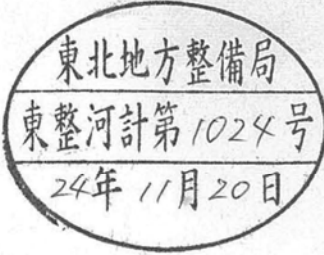 東北地方整備局
東整河計第1024号
24年11月20日